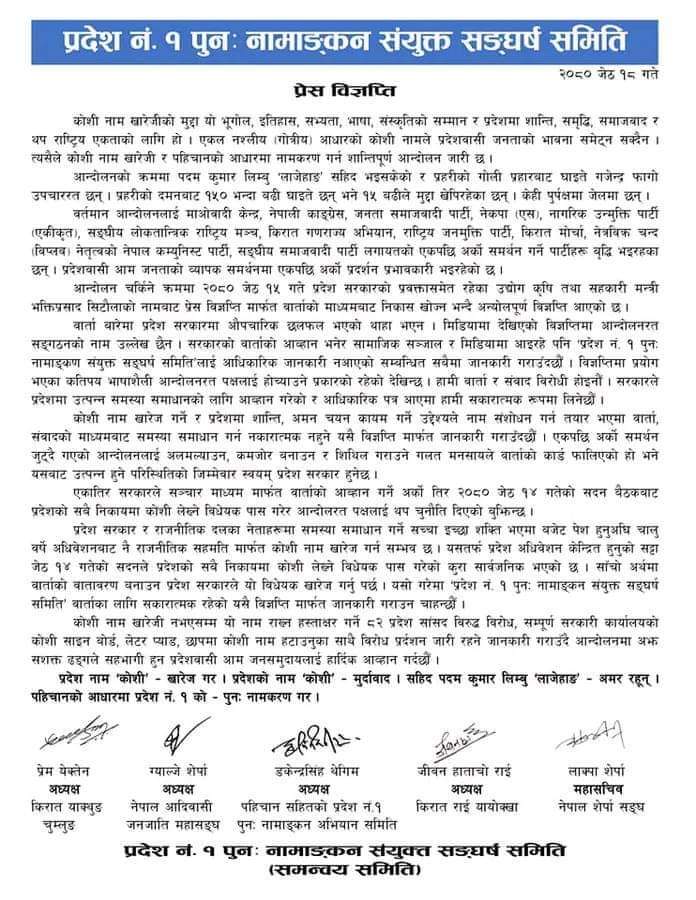 प्रदेश नं. १ पुनः नामाङ्कन संयुक्त सङ्घर्ष समिति
२०८० जेठ १८ गते
प्रेस विज्ञप्ति
कोशी नाम खारेजीको मुद्दा यो भूगोल, इतिहास, सभ्यता, भाषा, संस्कृतिको सम्मान र प्रदेशमा शान्ति, समृद्धि, समाजवाद र
थप राष्ट्रिय एकताको लागि हो । एकल नश्लीय (गोत्रीय) आधारको कोशी नामले प्रदेशवासी जनताको भावना समेट्न सक्दैन ।
त्यसैले कोशी नाम खारेजी र पहिचानको आधारमा नामकरण गर्न शान्तिपूर्ण आन्दोलन जारी छ ।
आन्दोलनको क्रममा पदम कुमार लिम्बु 'लाजेहाङ' सहिद भइसकेको र प्रहरीको गोली प्रहारबाट घाइते गजेन्द्र फागो
उपचाररत छन् । प्रहरीको दमनबाट १५० भन्दा बढी घाइते छन् भने १५ बढीले मुद्दा खेपिरहेका छन् । केही पुर्पक्षमा जेलमा छन् ।
वर्तमान आन्दोलनलाई माओवादी केन्द्र, नेपाली काङ्ग्रेस, जनता समाजवादी पार्टी, नेकपा (एस), नागरिक उन्मुक्ति पार्टी
(एकीकृत), सङ्घीय लोकतान्त्रिक राष्ट्रिय मञ्च, किरात गणराज्य अभियान, राष्ट्रिय जनमुक्ति पार्टी, किरात मोर्चा, नेत्रविक चन्द
(विप्लव) नेतृत्वको नेपाल कम्युनिस्ट पार्टी, सङ्घीय समाजवादी पार्टी लगायतको एकपछि अर्को समर्थन गर्ने पार्टीहरू वृद्धि भइरहका
छन् । प्रदेशवासी आम जनताको व्यापक समर्थनमा एकपछि अर्को प्रदर्शन प्रभावकारी भइरहेको छ ।
आन्दोलन चर्किने क्रममा २०८० जेठ १५ गते प्रदेश सरकारको प्रवक्तासमेत रहेका उद्योग कृषि तथा सहकारी मन्त्री
भक्तिप्रसाद सिटौलाको नामबाट प्रेस विज्ञप्ति मार्फत वार्ताको माध्यमबाट निकास खोज्न भन्दै अन्योलपूर्ण विज्ञप्ति आएको छ ।
वार्ता बारेमा प्रदेश सरकारमा औपचारिक छलफल भएको थाहा भएन । मिडियामा देखिएको विज्ञप्तिमा आन्दोलनरत
सङ्गठनको नाम उल्लेख छैन । सरकारको वार्ताको आव्हान भनेर सामाजिक सञ्जाल र मिडियामा आइरहे पनि 'प्रदेश नं. १ पुनः
नामाङ्कण संयुक्त सङ्घर्ष समिति'लाई आधिकारिक जानकारी नआएको सम्वन्धित सवैमा जानकारी गराउँदछौं । विज्ञप्तिमा प्रयोग
भएका कतिपय भाषाशैली आन्दोलनरत पक्षलाई होच्याउने प्रकारको रहेको देखिन्छ । हामी वार्ता र संवाद विरोधी होइनौं । सरकारले
प्रदेशमा उत्पन्न समस्या समाधानको लागि आव्हान गरेको र आधिकारिक पत्र आएमा हामी सकारात्मक रूपमा लिनेछौं ।
कोशी नाम खारेज गर्ने र प्रदेशमा शान्ति, अमन चयन कायम गर्ने उद्देश्यले नाम संशोधन गर्न तयार भएमा वार्ता,
संवादको माध्यमबाट समस्या समाधान गर्न नकारात्मक नहुने यसै विज्ञप्ति मार्फत जानकारी गराउँदछौं । एकपछि अर्को समर्थन
जुट्दै गएको आन्दोलनलाई अलमल्याउन, कमजोर बनाउन र शिथिल गराउने गलत मनसायले वार्ताको कार्ड फालिएको हो भने
यसबाट उत्पन्न हुने परिस्थितिको जिम्मेवार स्वयम् प्रदेश सरकार हुनेछ ।
एकातिर सरकारले सञ्चार माध्यम मार्फत वार्ताको आव्हान गर्ने अर्को तिर २०८० जेठ १४ गतेको सदन बैठकबाट
प्रदेशको सबै निकायमा कोशी लेख्ने विधेयक पास गरेर आन्दोलनरत पक्षलाई थप चुनौति दिएको बुझिन्छ ।
प्रदेश सरकार र राजनीतिक दलका नेताहरूमा समस्या समाधान गर्ने सच्चा इच्छा शक्ति भएमा बजेट पेश हुनुअघि चालु
वर्षे अधिवेशनबाट नै राजनीतिक सहमति मार्फत कोशी नाम खारेज गर्न सम्भव छ । यसतर्फ प्रदेश अधिवेशन केन्द्रित हुनुको सट्टा
जेठ १४ गतेको सदनले प्रदेशको सबै निकायमा कोशी लेख्ने विधेयक पास गरेको कुरा सार्वजनिक भएको छ । साँचो अर्थमा
वार्ताको वातावरण बनाउन प्रदेश सरकारले यो विधेयक खारेज गर्नु पर्छ । यसो गरेमा 'प्रदेश नं. १ पुनः नामाङ्कन संयुक्त सङ्घर्ष
समिति' वार्ताका लागि सकारात्मक रहेको यसै विज्ञप्ति मार्फत जानकारी गराउन चाहन्छौं ।
कोशी नाम खारेजी नभएसम्म यो नाम राख्न हस्ताक्षर गर्ने ८२ प्रदेश सांसद विरुद्ध विरोध, सम्पूर्ण सरकारी कार्यालयको
कोशी साइन वोर्ड, लेटर प्याड, छापमा कोशी नाम हटाउनुका साथै विरोध प्रर्दशन जारी रहने जानकारी गराउँदै आन्दोलनमा अझ
सशक्त ढङ्गले सहभागी हुन प्रदेशवासी आम जनसमुदायलाई हार्दिक आव्हान गर्दछौं ।
प्रदेश नाम 'कोशी' - खारेज गर । प्रदेशको नाम 'कोशी' - मुर्दावाद । सहिद पदम कुमार लिम्बु 'लाजेहाङ' - अमर रहून् ।
पहिचानको आधारमा प्रदेश नं. १ को - पुनः नामकरण गर ।
प्रेम येक्तेन ग्याल्जे शेर्पा डकेन्द्रसिंह थेगिम जीवन हाताचो राई लाक्पा शेर्पा
अध्यक्ष अध्यक्ष अध्यक्ष अध्यक्ष महासचिव
किरात याक्थुङ नेपाल आदिवासी पहिचान सहितको प्रदेश नं.१ किरात राई यायोक्खा नेपाल शेर्पा सङ्घ
चुम्लुङ जनजाति महासङ्घ पुनः नामाङ्कन अभियान समिति
प्रदेश नं. १ पुनः नामाङ्कन संयुक्त सङ्घर्ष समिति
(समन्वय समिति)